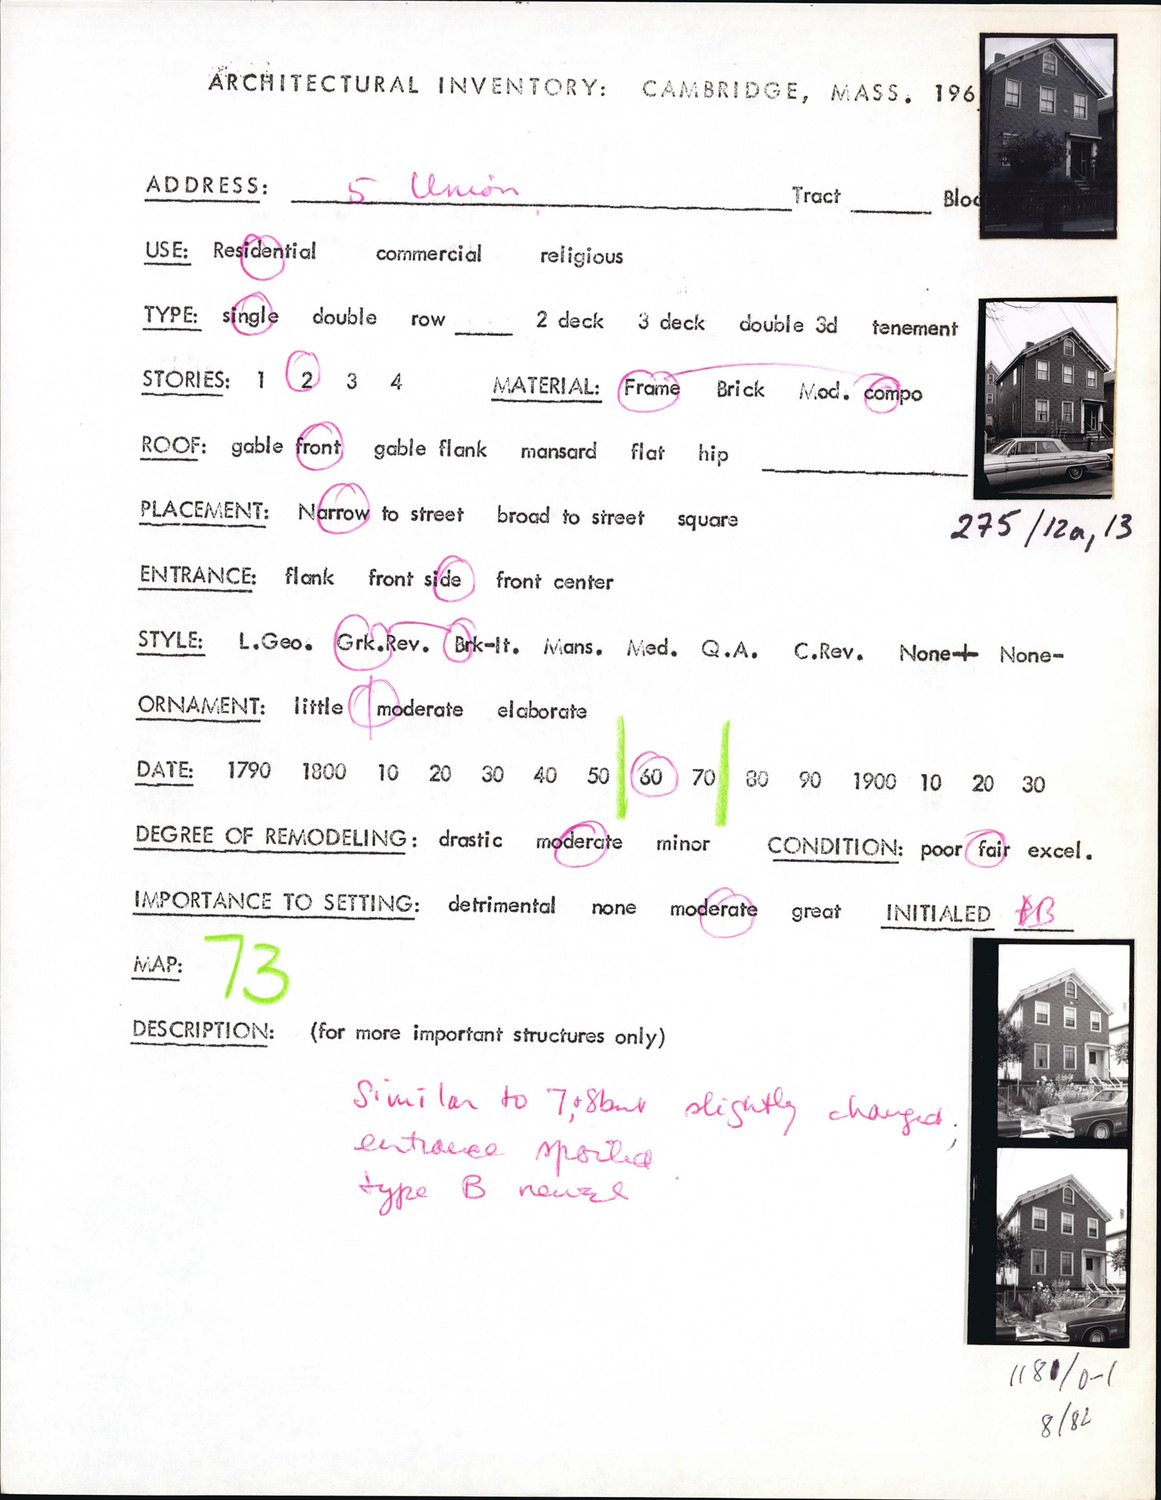 ARCHITECTURAL INVENTORY: CAMBRIDGE, MASS. 196
ADDRESS: 5 Union Tract Bloc
USE: Residential commercial religious
TYPE: single double row 2 deck 3 deck double 3d tenement
STORIES: 1 2 3 4 MATERIAL: Frame Brick Mod. compo
ROOF: gable front gable flank mansard flat hip
PLACEMENT: Narrow to street broad to street square
275/12a, 13
ENTRANCE: flank front side front center
STYLE: L.Geo. Grk.Rev. Brk-It. Mans. Med. Q.A. C.Rev. None+ None-
ORNAMENT: little moderate elaborate
DATE: 1790 1800 10 20 30 40 50 60 70 80 90 1900 10 20 30
DEGREE OF REMODELING: drastic moderate minor CONDITION: poor fair excel.
IMPORTANCE TO SETTING: detrimental none moderate great INITIALED
MAP: 73
DESCRIPTION: (for more important structures only)
Similar to 7,+8 but slightly changed;
entrance spoiled
type B
1181/0-1
8/82